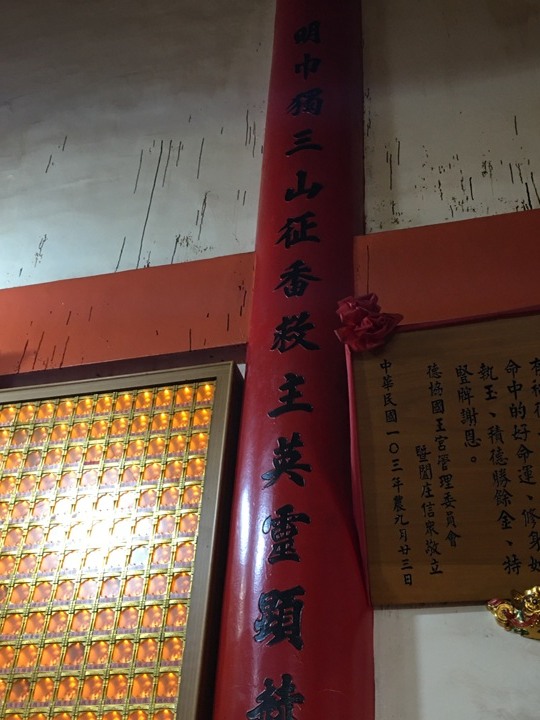 明巾獨三山征番救主英靈顯
命中的好命運、修身如
執玉、積德勝餘金、特
豎牌謝恩。
德協國王宮管理委員會
暨閤庄信眾敬立
中華民國一〇三年農九月廿三日